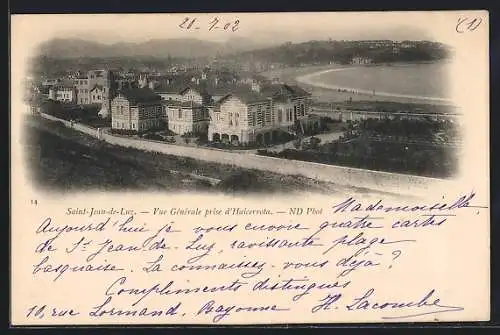 21-7-02
(1)
14
Saint-Jean-de-Luz. — Vue Générale prise d'Haicerrota. — ND Phot
Mademoiselle,
Aujourd'hui je vous envoie quatre cartes
de St Jean-de-Luz, ravissante plage
basquaise. La connaissez-vous déjà ?
Compliments distingués
10, rue Lormand. Bayonne H. Lacombe